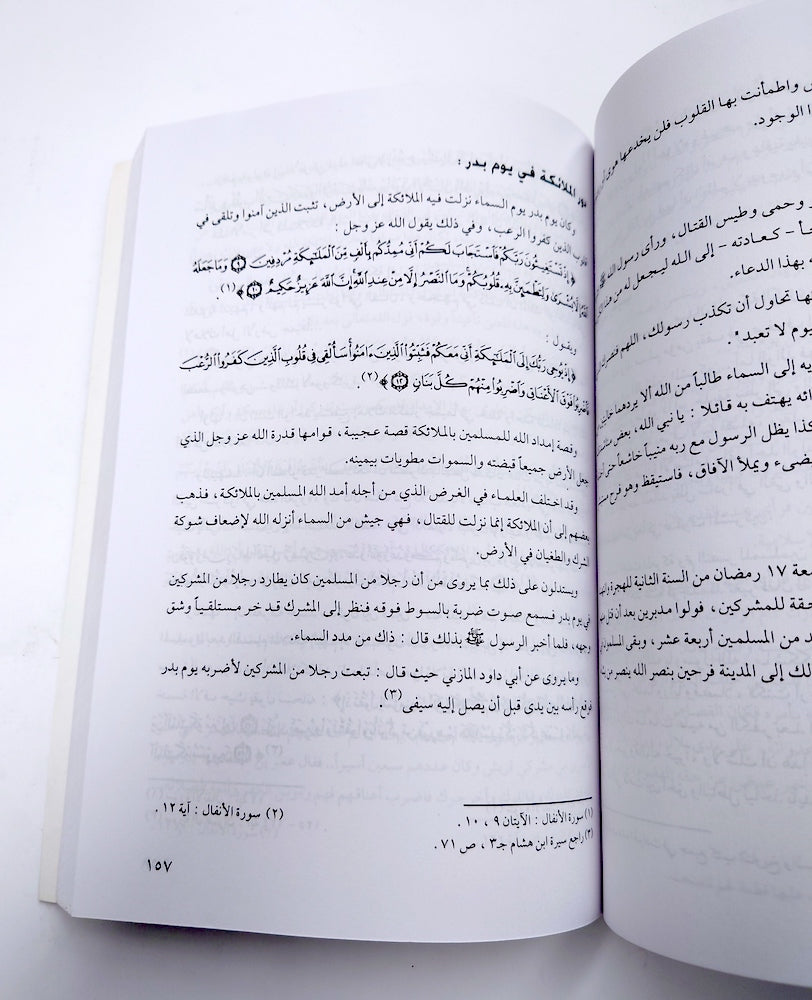 واطمأنت بها القلوب فلن يخدعها هوى
الوجود.
وحمى وطيس القتال، ورأى رسول الله
- كعادته - إلى الله ليجعل له من هذا
بهذا الدعاء.
تحاول أن تكذب رسولك، اللهم فنصرك
يوم لا تعبد".
إلى السماء طالباً من الله ألا يردهما
يهتف به قائلا : يا نبي الله، بعض
يظل الرسول مع ربه منيباً خاشعاً حتى
ويملأ الآفاق، فاستيقظ وهو فرح
١٧ رمضان من السنة الثانية للهجرة
للمشركين، فولوا مدبرين بعد أن
من المسلمين أربعة عشر، وبقى
إلى المدينة فرحين بنصر الله ينصر من
الملائكة في يوم بدر :
وكان يوم بدر يوم السماء نزلت فيه الملائكة إلى الأرض، تثبت الذين آمنوا وتلقى في
قلوب الذين كفروا الرعب، وفي ذلك يقول الله عز وجل :
﴿ إِذْ تَسْتَغِيثُونَ رَبَّكُمْ فَاسْتَجَابَ لَكُمْ أَنِّي مُمِدُّكُم بِأَلْفٍ مِّنَ الْمَلَائِكَةِ مُرْدِفِينَ ٩ وَمَا جَعَلَهُ
اللَّهُ إِلَّا بُشْرَى وَلِتَطْمَئِنَّ بِهِ قُلُوبُكُمْ وَمَا النَّصْرُ إِلَّا مِنْ عِندِ اللَّهِ إِنَّ اللَّهَ عَزِيزٌ حَكِيمٌ ١٠ ﴾ (١).
ويقول :
﴿ إِذْ يُوحِي رَبُّكَ إِلَى الْمَلَائِكَةِ أَنِّي مَعَكُمْ فَثَبِّتُوا الَّذِينَ ءَامَنُوا سَأُلْقِي فِي قُلُوبِ الَّذِينَ كَفَرُوا الرُّعْبَ
فَاضْرِبُوا فَوْقَ الْأَعْنَاقِ وَاضْرِبُوا مِنْهُمْ كُلَّ بَنَانٍ ١٢ ﴾ (٢).
وقصة إمداد الله للمسلمين بالملائكة قصة عجيبة، قوامها قدرة الله عز وجل الذي
جعل الأرض جميعاً قبضته والسموات مطويات بيمينه.
وقد اختلف العلماء في الغرض الذي من أجله أمد الله المسلمين بالملائكة، فذهب
بعضهم إلى أن الملائكة إنما نزلت للقتال، فهي جيش من السماء أنزله الله لإضعاف شوكة
الشرك والطغيان في الأرض.
ويستدلون على ذلك بما يروى من أن رجلا من المسلمين كان يطارد رجلا من المشركين
في يوم بدر فسمع صوت ضربة بالسوط فوقه فنظر إلى المشرك قد خر مستلقياً وشق
وجهه، فلما أخبر الرسول ﷺ بذلك قال : ذاك من مدد السماء.
وما يروى عن أبي داود المازني حيث قال : تبعت رجلا من المشركين لأضربه يوم بدر
فوقع رأسه بين يدى قبل أن يصل إليه سيفى (٣).
(١) سورة الأنفال : الآيتان ٩ ، ١٠ .
(٢) سورة الأنفال : آية ١٢ .
(٣) راجع سيرة ابن هشام جـ٣ ، ص ٧١ .
١٥٧